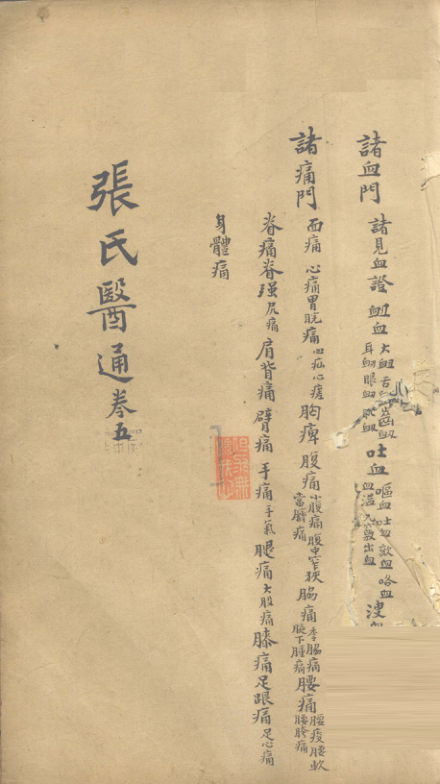 諸血門 諸見血證 衄血 大衄 舌 齒衄 耳衄 眼血 吐血 嘔血 吐血 欬血 咯血 血溢 九竅出血 溲
諸痛門 面痛 心痛胃脘痛 心疝心瘥 胸痺 腹痛 小腹痛 腹中窄狹 當臍痛 脇痛 季脇痛 腋下腫痛 腰痛 腰痠腰軟 腰胯痛
脊痛脊强 尻痛 肩背痛 臂痛 手痛 手氣 腿痛 大股痛 膝痛 足跟痛 足心痛
身體痛
張氏醫通 卷五